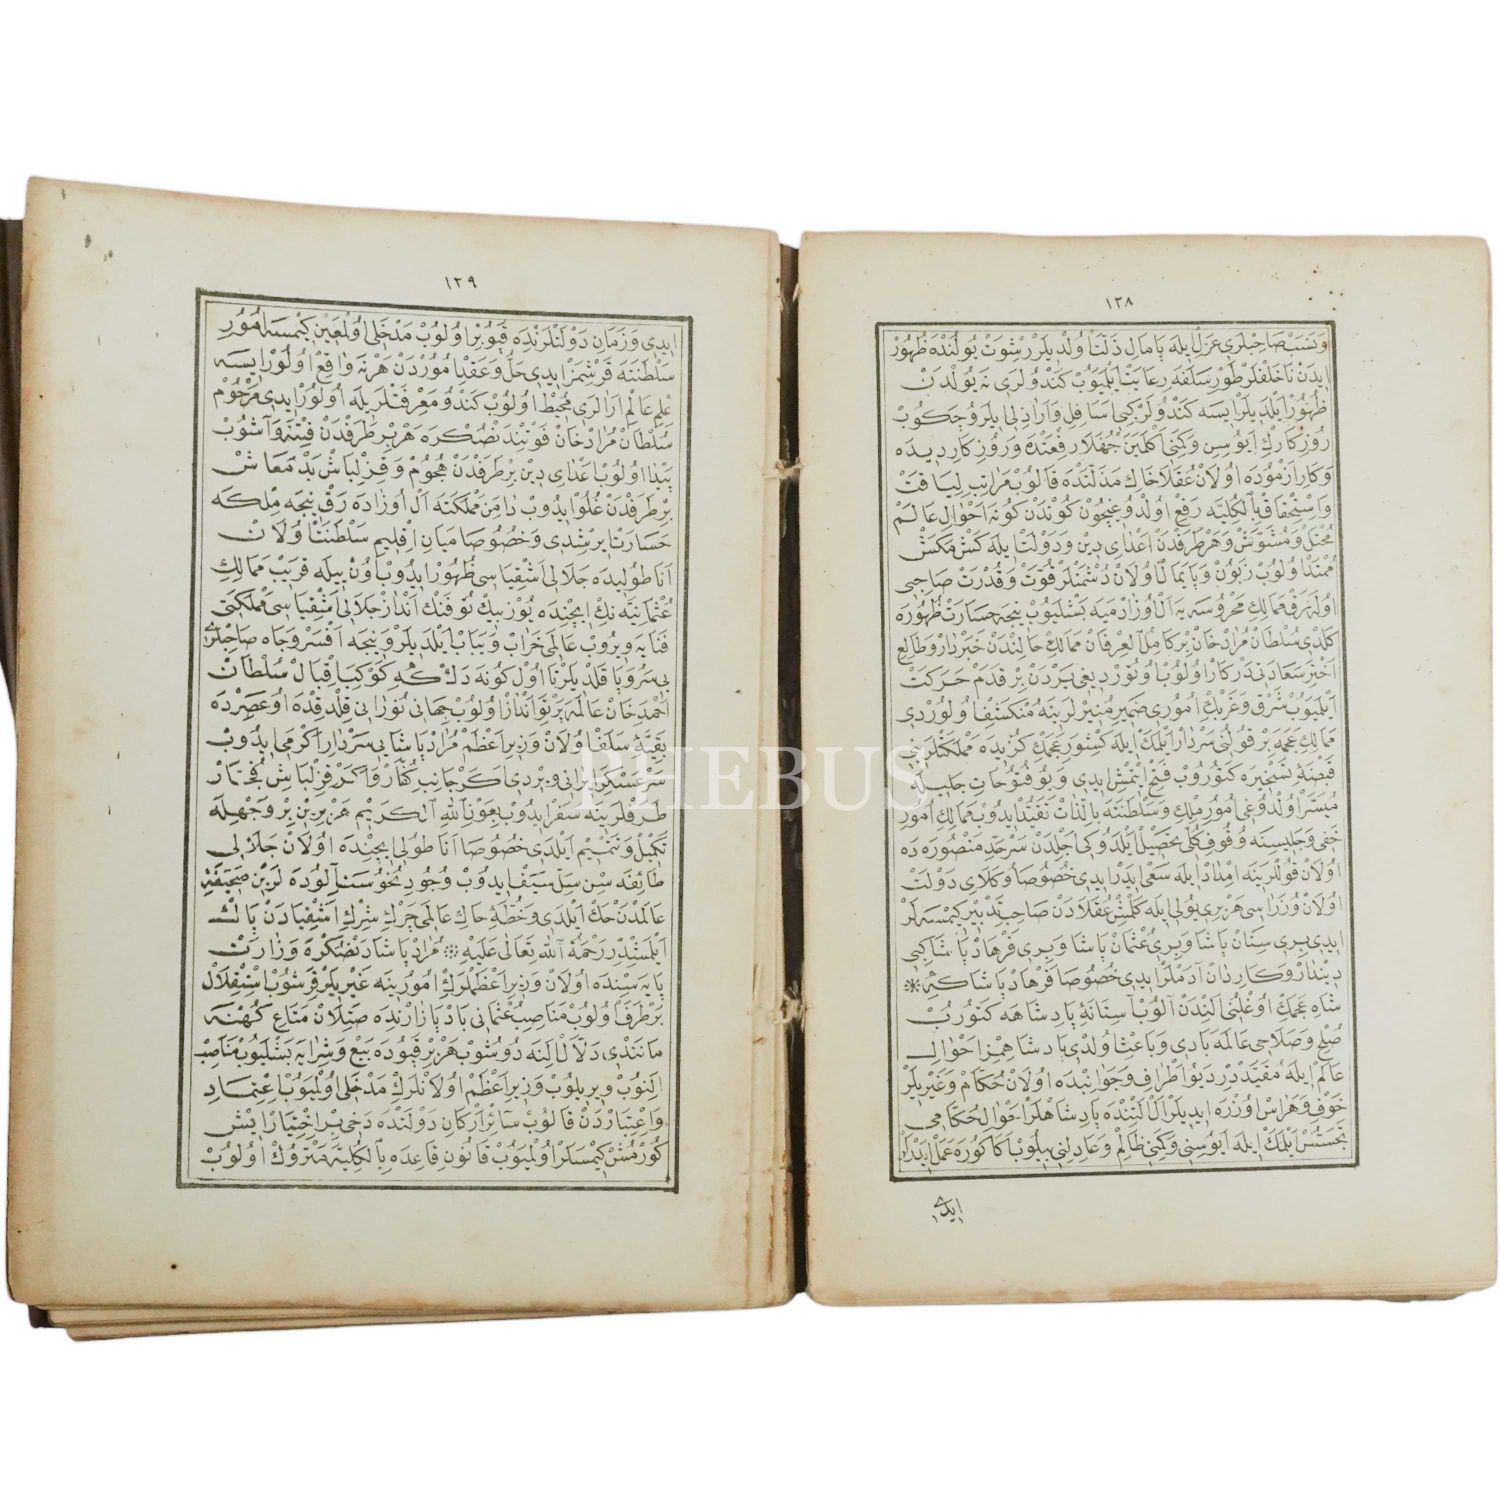 ١٢٨
ونسب صاحبلرى عزل ايله پامال ذلت اولديلر رشوت يولنده ظهور
ايدن ناخلفلر طور سلفه رعايت ايلميوب كندولرى نه يولدن
ظهور ايلديلر ايسه كندولر كبى سافل واراذلى ايلرو چكوب
روزكارك ايوسن وكنى اكلمين جهلا رفعتده وروزكار ديده
وكار ازموده اولان عقلا خاك مذلتده قالوب مراتب لياقت
واستحقاق بالكليه رفع اولدوغيچون كوندن كونه احوال عالم
مختل ومشوش وهر طرفدن اعداى دين ودولت ايله كشمكش
ممتد اولوب زبون وپايمال اولان دشمنلر قوت وقدرت صاحبى
اولهرق ممالك محروسه يه ال اوزادميه بشليوب نيجه خسارت ظهوره
كلدى سلطان مراد خان بر كامل العرفان ممالك حالندن خبردار وطالع
اختر سعادتى دركار اولوب اوتورديغى يردن بر قدم حركت
ايلميوب شرق وغربك امورى ضمير منيرلرينه منكشف اولوردى
ممالك عجمه بر قولنى سردار ايلمك ايله كشور عجمك كزيده مملكتلرينى
قبضه تسخيره كتوروب فتح ايتمش ايدى وبو فتوحات جليله
ميسر اولدوغى امور ملك وسلطنته بالذات تقيد ايدوب ممالك امور
خفى وجليسنه وقوف كلى تحصيل ايلدوكى اجلدن سرحد منصوره ده
اولان قوللرينه امداد ايله سعى ايدر ايدى خصوصا وكلاى دولت
اولان وزراسى هر برى يولى ايله كلمش عقلادن صاحب تدبير كيمسهلر
ايدى برى سنان پاشا وبرى عثمان پاشا وبرى فرهاد پاشا كبى
ديندار وكاردان آدملر ايدى خصوصا فرهاد پاشا كه
شاه عجمك اوغلنى الندن آلوب آستانه پادشاهه كتوروب
صلح وصلاحى عالمه بادى وباعث اولدى پادشاهمز احوال
عالم ايله مقيددر ديو اطراف وجوانبده اولان حكام وغيريلر
خوف وهراس اوزره ايديلر ال التنده پادشاهلر احوال حكامى
تجسس ايلمك ايله ايوسنى وكمنى ظالم وعادلنى بيلوب اكا كوره عمل ايدر
ايدى
١٢٩
ايدى وزمان دولتلرنده قپو بر اولوب مدخلى اولمين كيمسه امور
سلطنته قرشمز ايدى حل وعقد اموردن هر نه واقع اولور ايسه
علم عالم ارالرى محيط اولوب كندو معرفتلر يله اولور ايدى مرحوم
سلطان مراد خان فوتيندنصكره هر بر طرفدن فتنه وآشوب
پيدا اولوب اعداى دين بر طرفدن هجوم وقزلباش بد معاش
بر طرفدن غلو ايدوب دامن مملكته ال اوزاده رق نيجه ملكه
خسارت ايرشدى وخصوصا ميان اقليم سلطنت اولان
اناطوليده جلالى اشقياسى ظهور ايدوب اون ييله قريب ممالك
عثمانيه نك ايچنده يوز بيك توفنك انداز جلالى اشقياسى مملكتى
فنايه ويروب عالمى خراب ويباب ايلديلر ونيجه افسر وجاه صاحبلرى
بى سر وپا قلديلر تا اول كونه دك كه كوكب اقبال سلطان
احمد خان عالمه پرتو انداز اولوب جهانى نورانى قلدقده اوعصرده
بقيه سلف اولان وزير اعظم مراد پاشايى سردار اكرمى ايدوب
سر عسكر ايرانى ويردى اكر جانب كفار واكر قزلباش فجتار
طرفلرينه سفر ايدوب بعون الله الكريم هر برين بر وجهله
تكميل وتتميم ايلدى خصوصا اناطولى ايچنده اولان جلالى
طائفه سن سل سيف ايدوب وجود نحوست آلودهلرين صحيفه
عالمدن حك ايلدى وخطه خاك عالمى چرك شرك اشقيادن پاك
ايلمشيدر رحمة الله تعالى عليه مراد پاشادنصكره وزارت
پايه سنده اولان وزير اعظملرك امورينه غيريلر قرشوب استقلال
بر طرف اولوب مناصب عثمانى باد پازارنده صتيلان متاع كهنه
مانندى دلال النه دوشوب هر بر قپوده بيع وشرايه بشليوب مناصب
النوب ويريلوب وزير اعظم اولانلرك مدخلى اولميوب اعتماد
واعتباردن قالوب سائر اركان دولتده دخى بر اختيار ايش
كورمش كيمسلر اولميوب قانون قاعده بالكليه متروك اولوب
PHEBUS